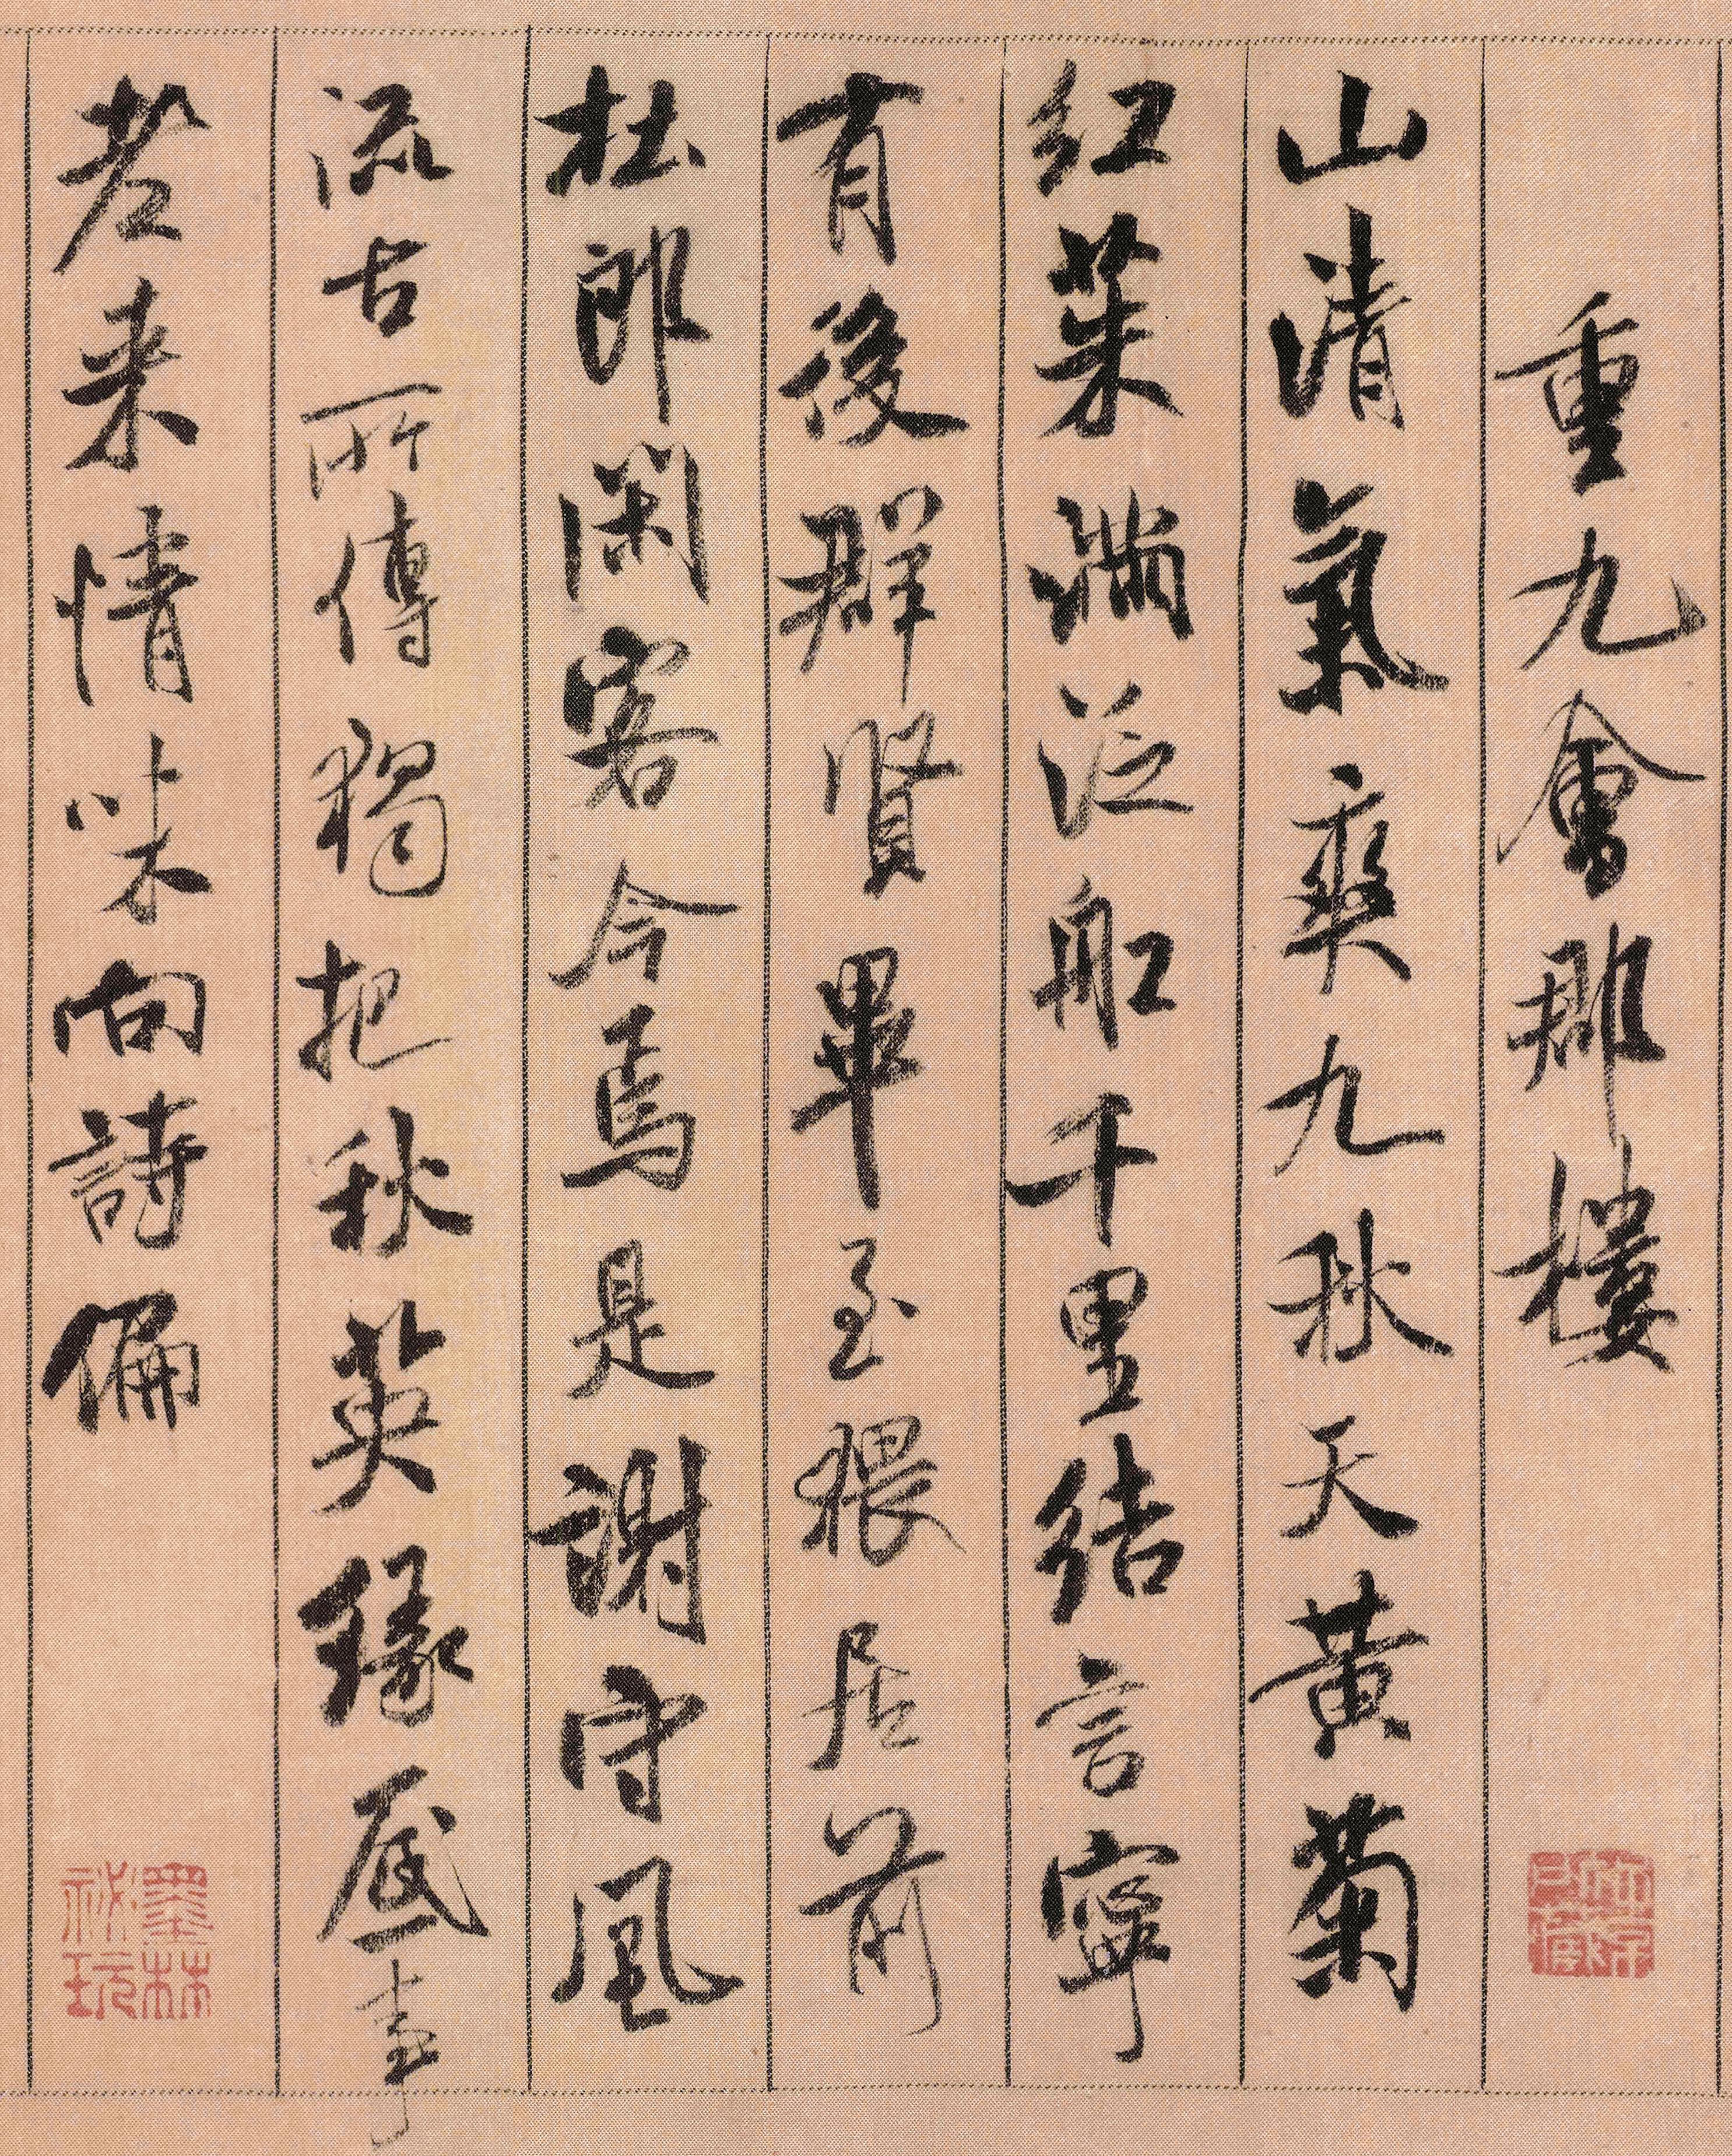 重九會郡樓
山清氣爽九秋天黃菊
紅茱滿泛船千里結言寧
有後群賢畢至猥居前
杜郎閑客今焉是謝守風
流古所傳獨把秋英緣底事
老来情味向詩偏